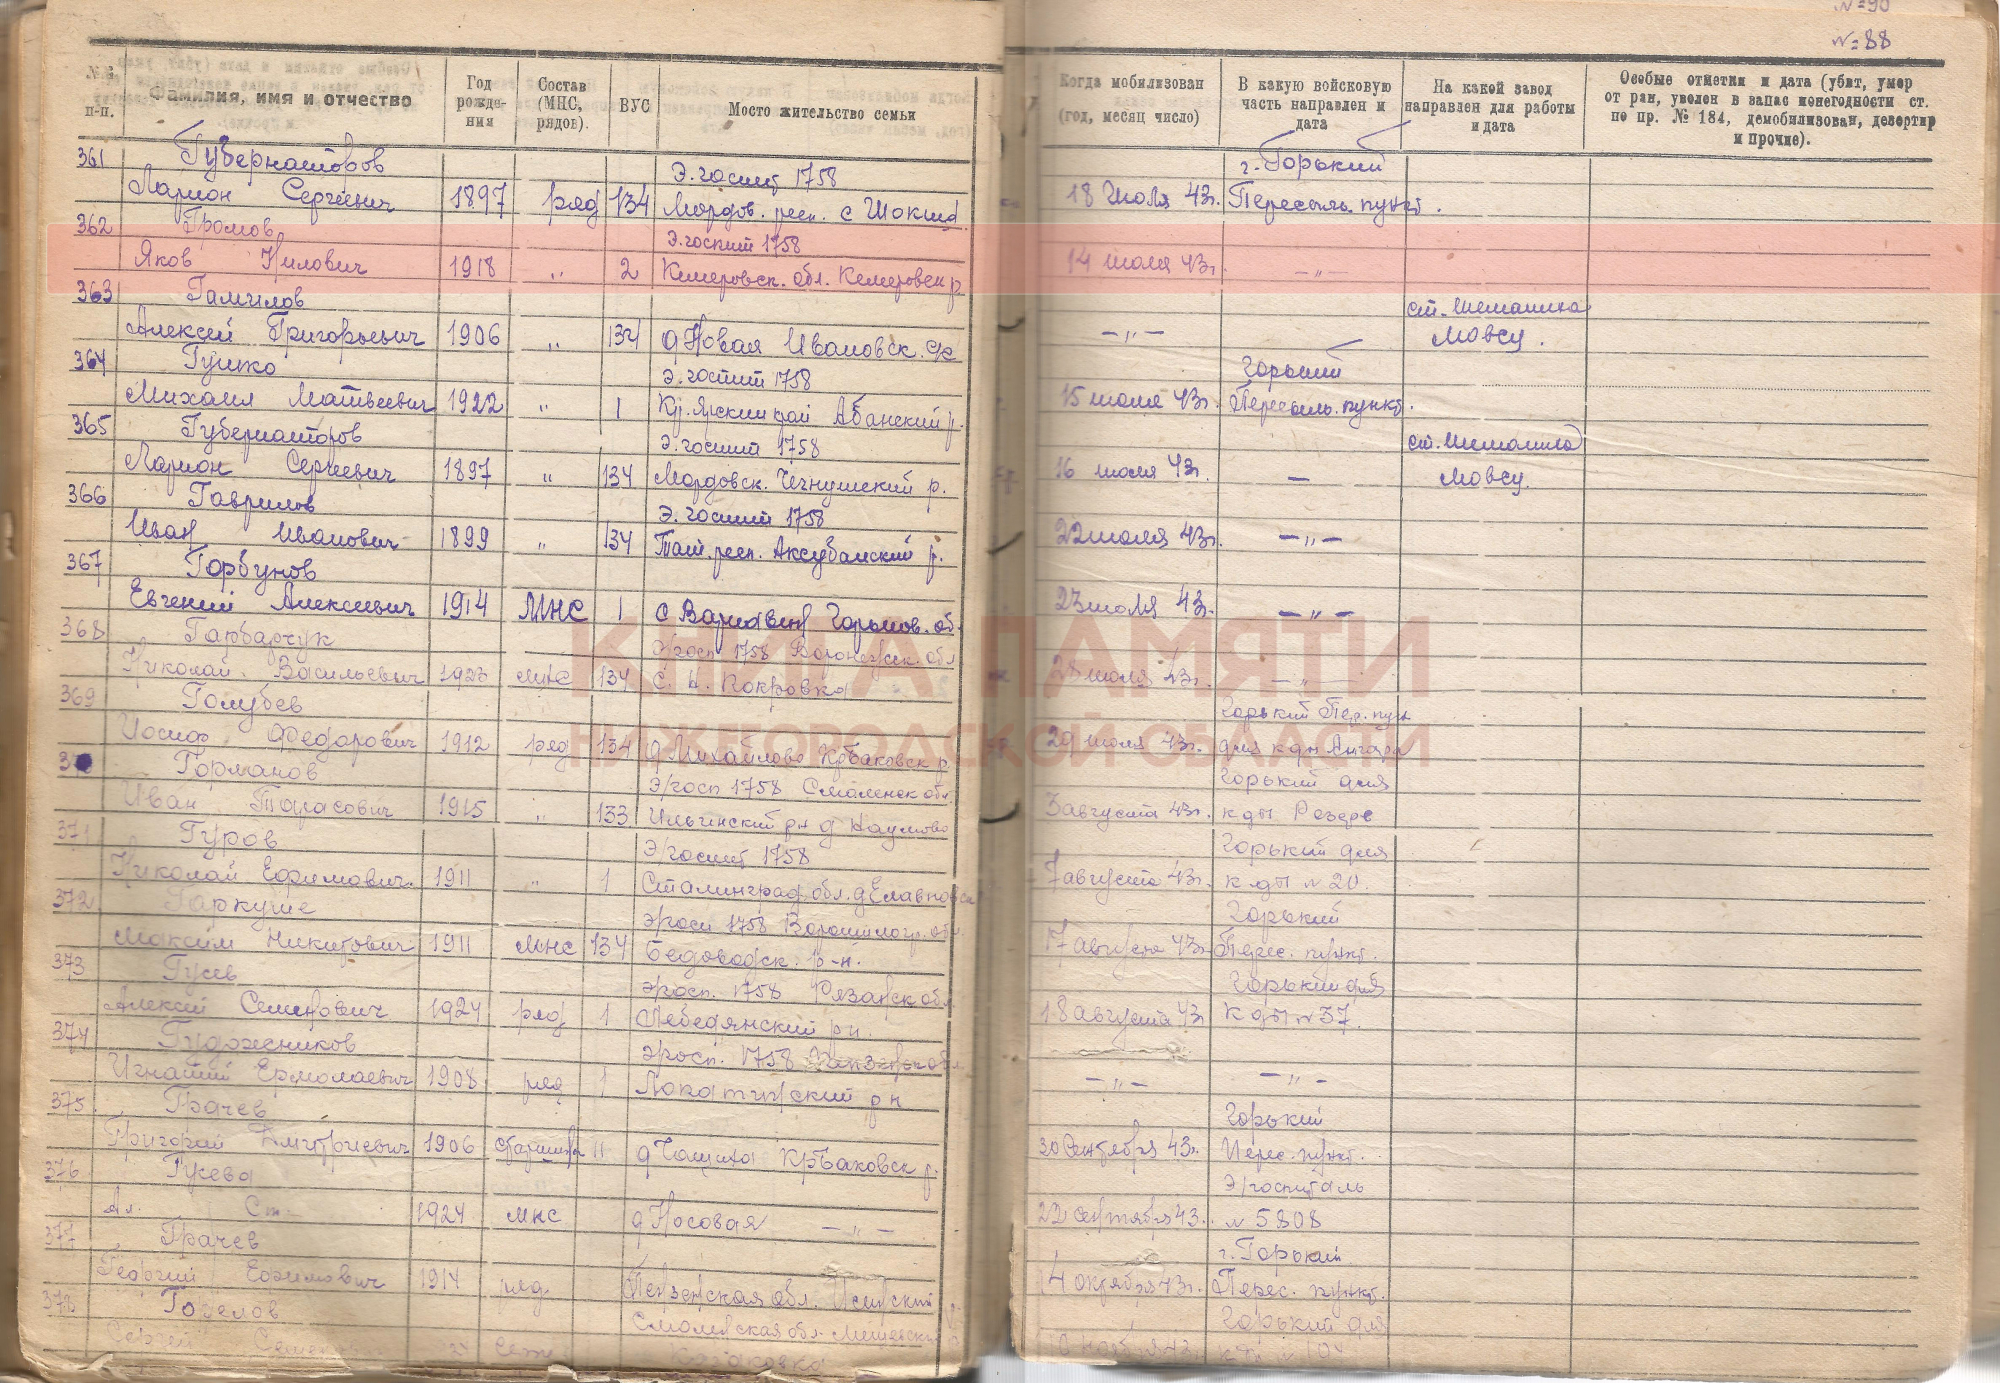 №=90
№=88
№№ п-п. Фамилия, имя и отчество Год рожде-ния Состав (МНС, рядов). ВУС Мосто жительство семьи Когда мобилизован (год, месяц число) В какую войсковую часть направлен и дата На какой завод направлен для работы и дата Особые отметки и дата (убит, умер от ран, уволен в запас ионегодности ст. по пр. № 184, демобилизован, дезертир и прочие).
361 Губернаторов Э.госпит 1758 г. Горький
Ларион Сергеевич 1897 ряд 134 Мордов. респ. с Шокша 18 Июля 43г. Пересыль. пункт.
362 Громов Э.госпит 1758
Яков Нилович 1918 〃 2 Кемеровск. обл. Кемеровск р 14 июля 43г. —〃—
363 Гамилов ст. Шеманиха
Алексей Григорьевич 1906 〃 134 д Новая Ивановск. с/с —〃— Мовсу.
364 Гушко Э.госпит 1758 Горький
Михаил Матвеевич 1922 〃 1 Кр.ярский край Абанский р. 15 июля 43г. Пересыль. пункт.
365 Губернаторов Э.госпит 1758 ст. Шеманиха
Ларион Сергеевич 1897 〃 134 Мордовск. р. 16 июля 43г. — Мовсу.
366 Гаврилов Э.госпит 1758
Иван Иванович 1899 〃 134 Тат. респ. Аксубаиский р. 22 июля 43г. —〃—
367 Горбунов
Евгений Алексеевич 1914 МНС 1 с Варнавин Горьков. об. 23 июля 43г. —〃—
368 Гайбарчук Э/госп 1758 Воронежск. обл
Николай Васильевич 1923 МНС 134 с. Н. Покровка 28 июля 43г. —〃—
369 Голубев Горький Пер. пун
Иосиф Федорович 1912 ряд 134 д Михайлово Кр.Баковск р 29 июля 43г. для к-ды
Горманов Э/госп 1758 Смоленск обл. Горький для
Иван Тарасович 1915 〃 133 Ильинский р-н д Наумово 3 августа 43г. к-ды
371 Гуров Э/госпит 1758 Горький для
Николай Ефимович 1911 〃 1 Сталинград. обл. 7 августа 43г. к-ды №20.
372 Гаркуше Э/госп 1758 Ворошилогр. обл. Горький
Максим Никитович 1911 МНС 134 Беловодск. р-н. 17 августа 43г. Перес. пункт.
373 Гусев Э/госп. 1758 Рязанск обл. Горький для
Алексей Семенович 1924 ряд 1 Лебедянский р-н. 18 августа 43г К-ды №37.
374 Гудожников Э/госп. 1758 Пензенск обл.
Игнатий Ермолаевич 1908 ряд 1 р-н —〃— —〃—
375 Грачев Горький
Григорий Дмитриевич 1906 старшина 11 д Чащиха Кр-Баковск р. 30 Сентября 43г. Перес. пункт.
376 Гусева Э/госпиталь
Ал. Ст. 1924 МНС д Носовая —〃— 22 сентября 43. № 5808
377 Грачев г. Горький
Георгий Ефимович 1914 ряд. Пензенская обл. 4 октября 43г. Перес. пункт.
378 Горелов Смоленская обл. Горький для
Сергей ноября 43г.
КНИГА ПАМЯТИ
НИЖЕГОРОДСКОЙ ОБЛАСТИ